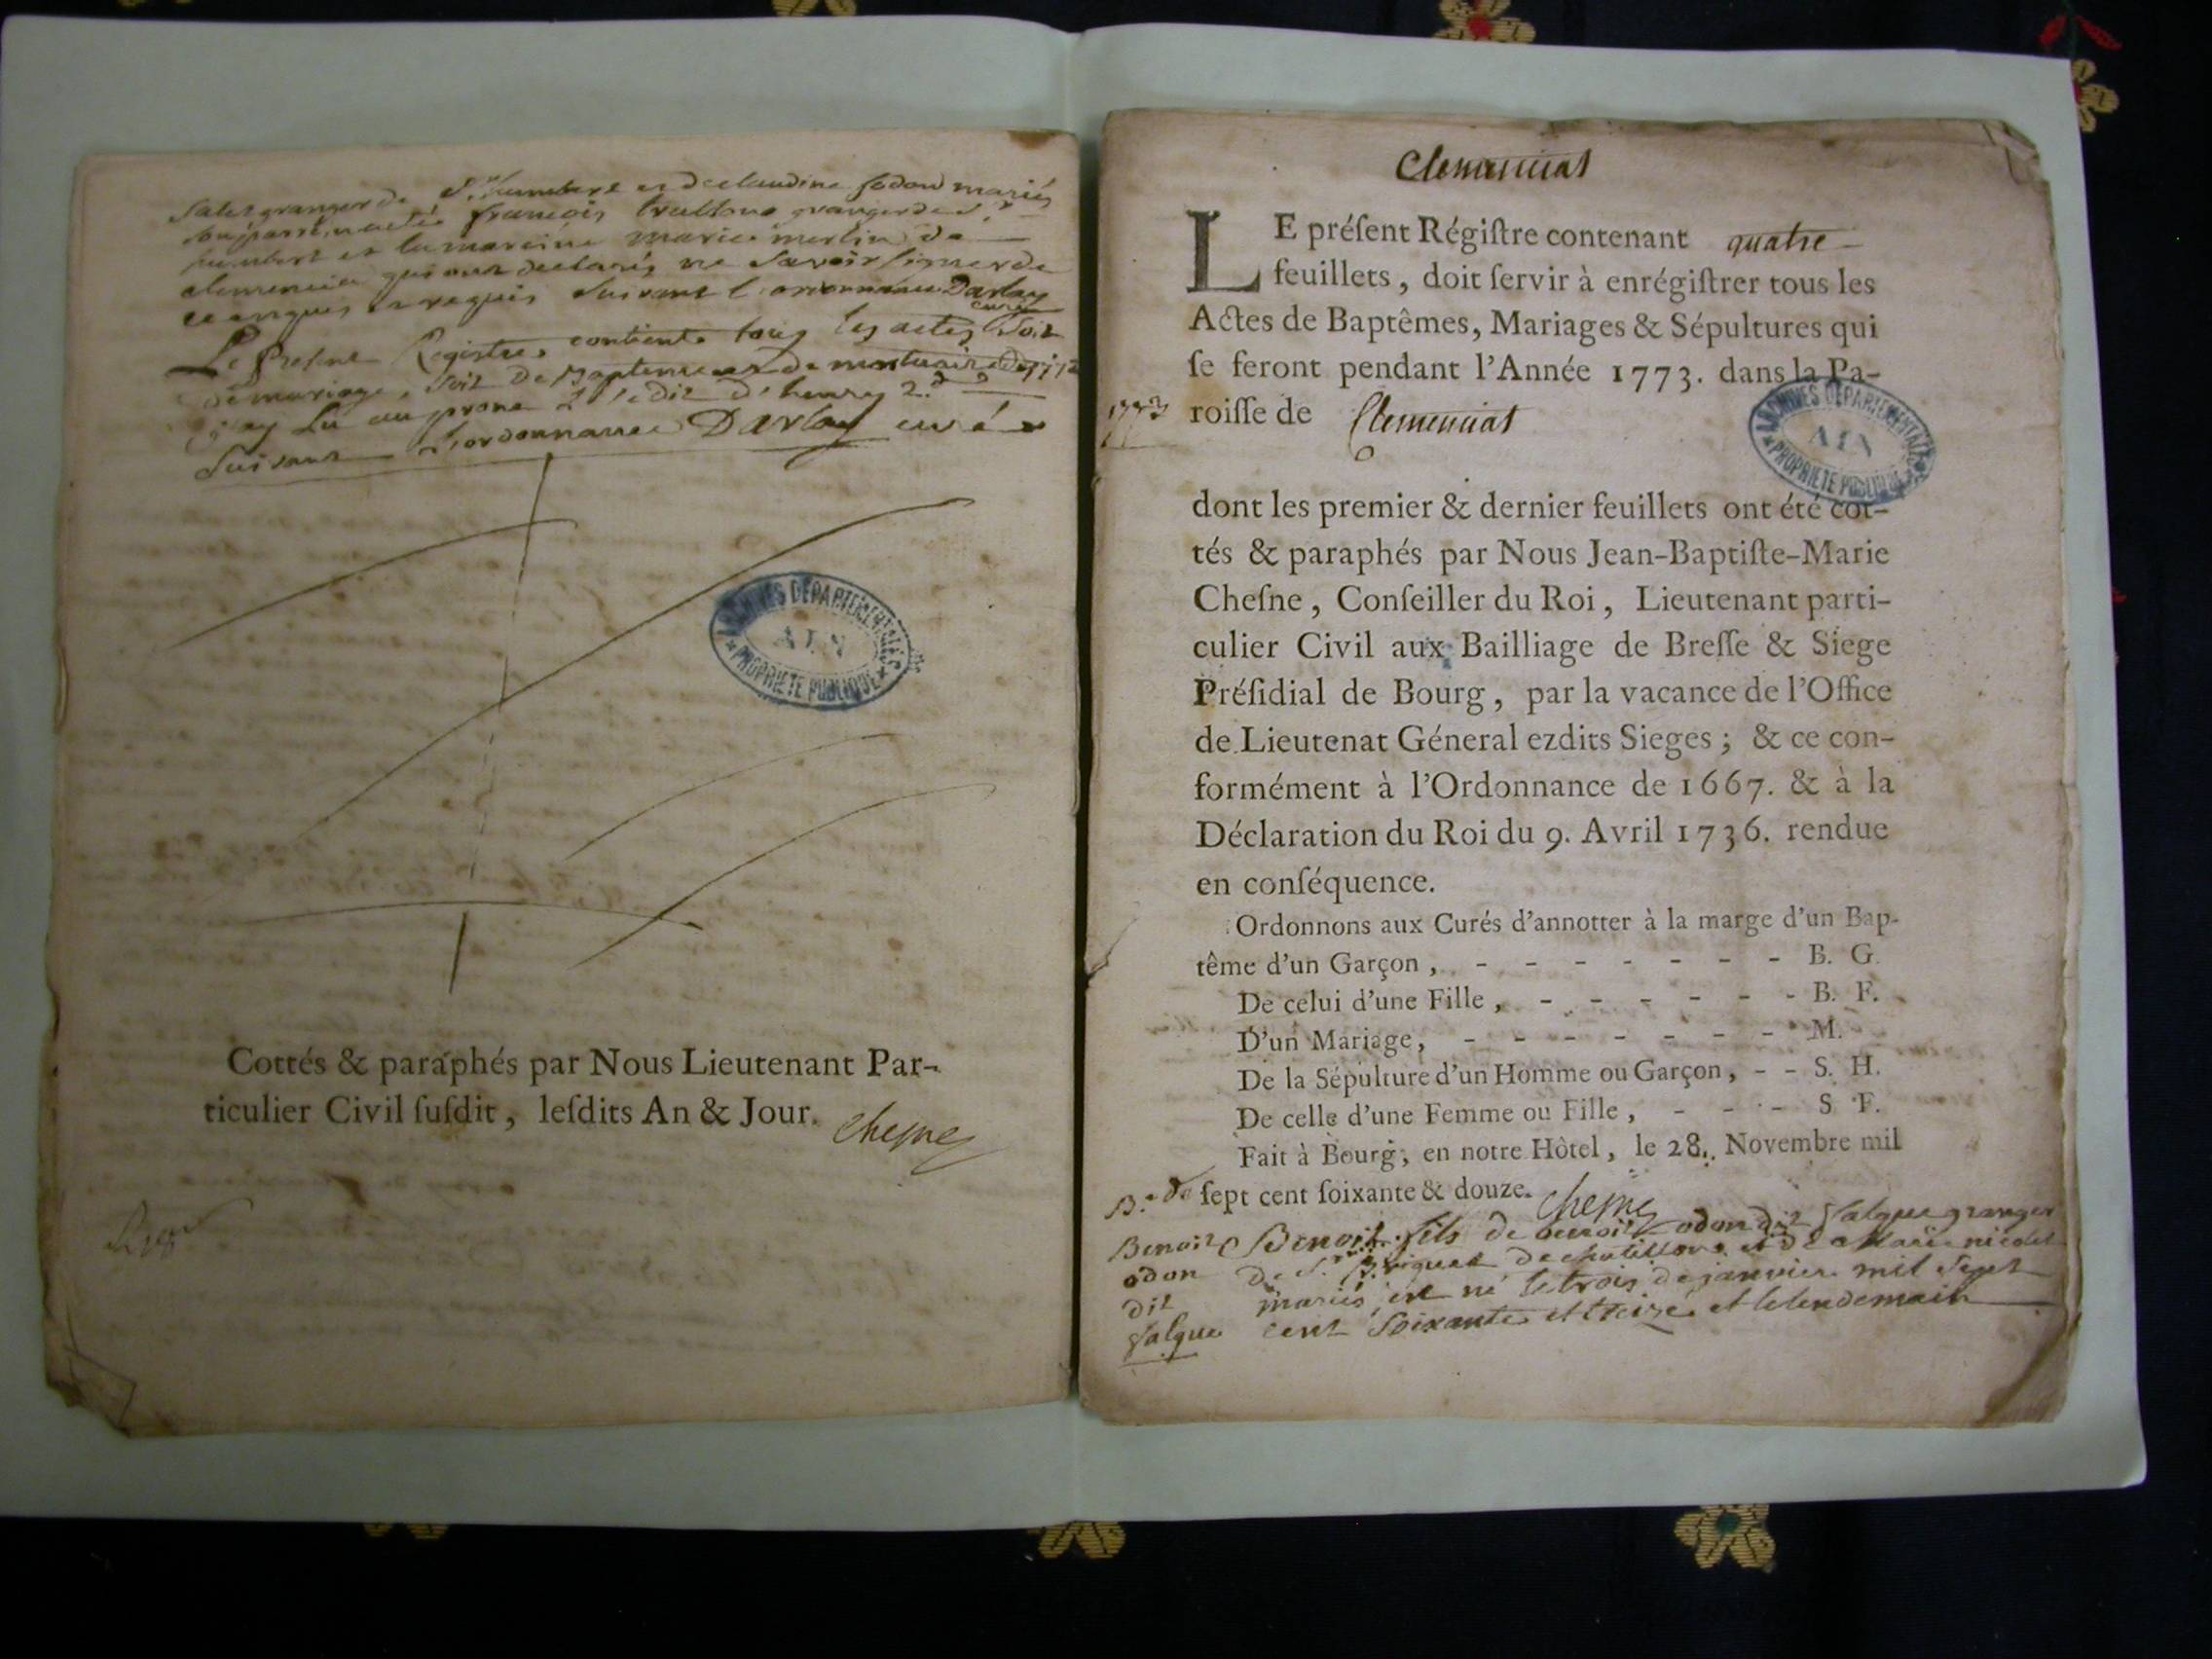 granger de St humbert et de claudine
françois granger de St
humbert et la maraine marie merlin de
qui ont declarés ne savoir signer de
ce enquis et requis suivant l'ordonnance Darlay
curé
Le present Registre contient tous les actes soit
de mariage, soit de Baptemes et de mortuaire de 1772
j'ay Lu au prone L'edit d'henry 2.d
suivant L'ordonnance Darlay curé
ARCHIVES DÉPARTEMENTALES
AIN
PROPRIÉTÉ PUBLIQUE
Cottés & paraphés par Nous Lieutenant Par-
ticulier Civil ſuſdit, leſdits An & Jour. Chesne
Clemenciat
LE préſent Régiſtre contenant quatre
feuillets, doit ſervir à enrégiſtrer tous les
Actes de Baptêmes, Mariages & Sépultures qui
ſe feront pendant l'Année 1773. dans la Pa-
1773
roiſſe de Clemenciat
ARCHIVES DÉPARTEMENTALES
AIN
PROPRIÉTÉ PUBLIQUE
dont les premier & dernier feuillets ont été cot-
tés & paraphés par Nous Jean-Baptiſte-Marie
Cheſne, Conſeiller du Roi, Lieutenant parti-
culier Civil aux Bailliage de Breſſe & Siege
Préſidial de Bourg, par la vacance de l'Office
de Lieutenat Géneral ezdits Sieges; & ce con-
formément à l'Ordonnance de 1667. & à la
Déclaration du Roi du 9. Avril 1736. rendue
en conſéquence.
Ordonnons aux Curés d'annotter à la marge d'un Bap-
tême d'un Garçon, - - - - - - - B. G.
De celui d'une Fille, - - - - - - B. F.
D'un Mariage, - - - - - - - M.
De la Sépulture d'un Homme ou Garçon, - - S. H.
De celle d'une Femme ou Fille, - - - S. F.
Fait à Bourg, en notre Hôtel, le 28. Novembre mil
ſept cent ſoixante & douze. Chesne
B. de
Benoit
odon
dit
falque
Benoit fils de benoit odon dit falque granger
de Sr de chatillon et de
mariés, est né le trois de janvier mil sept
cent soixante et treize et le lendemain